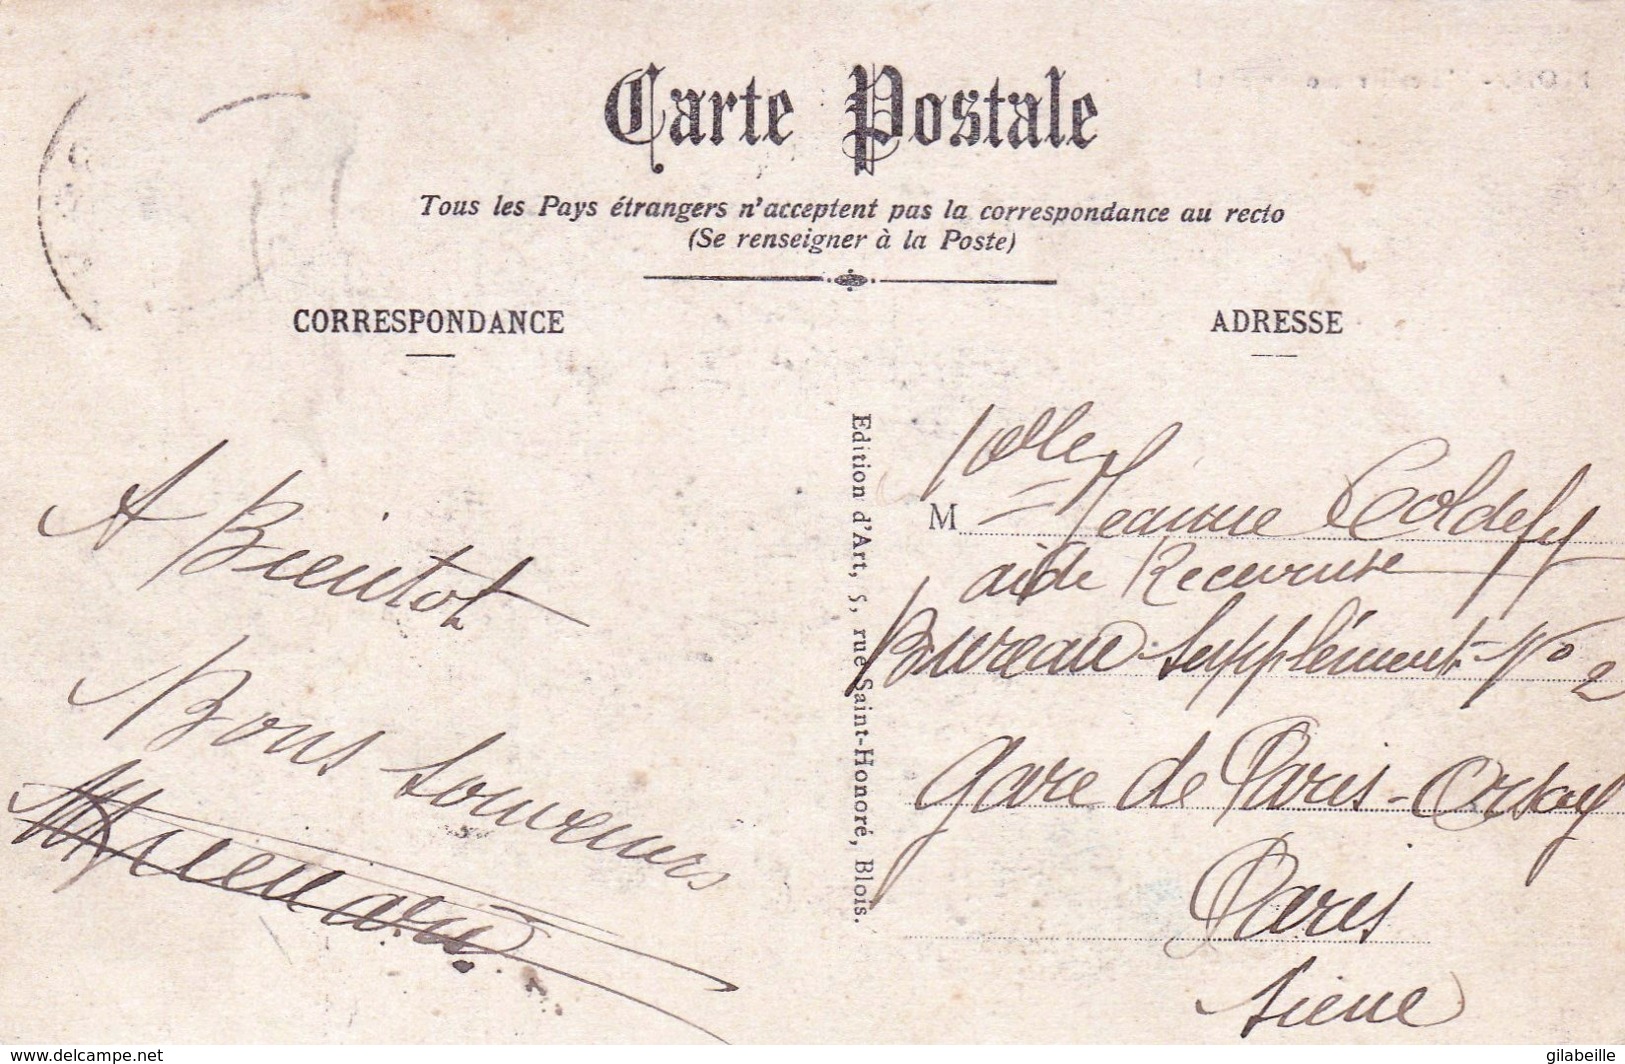 Carte Postale
Tous les Pays étrangers n'acceptent pas la correspondance au recto
(Se renseigner à la Poste)
CORRESPONDANCE
A Bientot
Bons souvenirs
Edition d'Art, 5, rue Saint-Honoré, Blois.
ADRESSE
M elle Jeanne Coldefy
aide Receveuse
Bureau Supplément. No 2
Gare de Paris-Orsay
Paris
Siene
www.delcampe.net
gilabeille